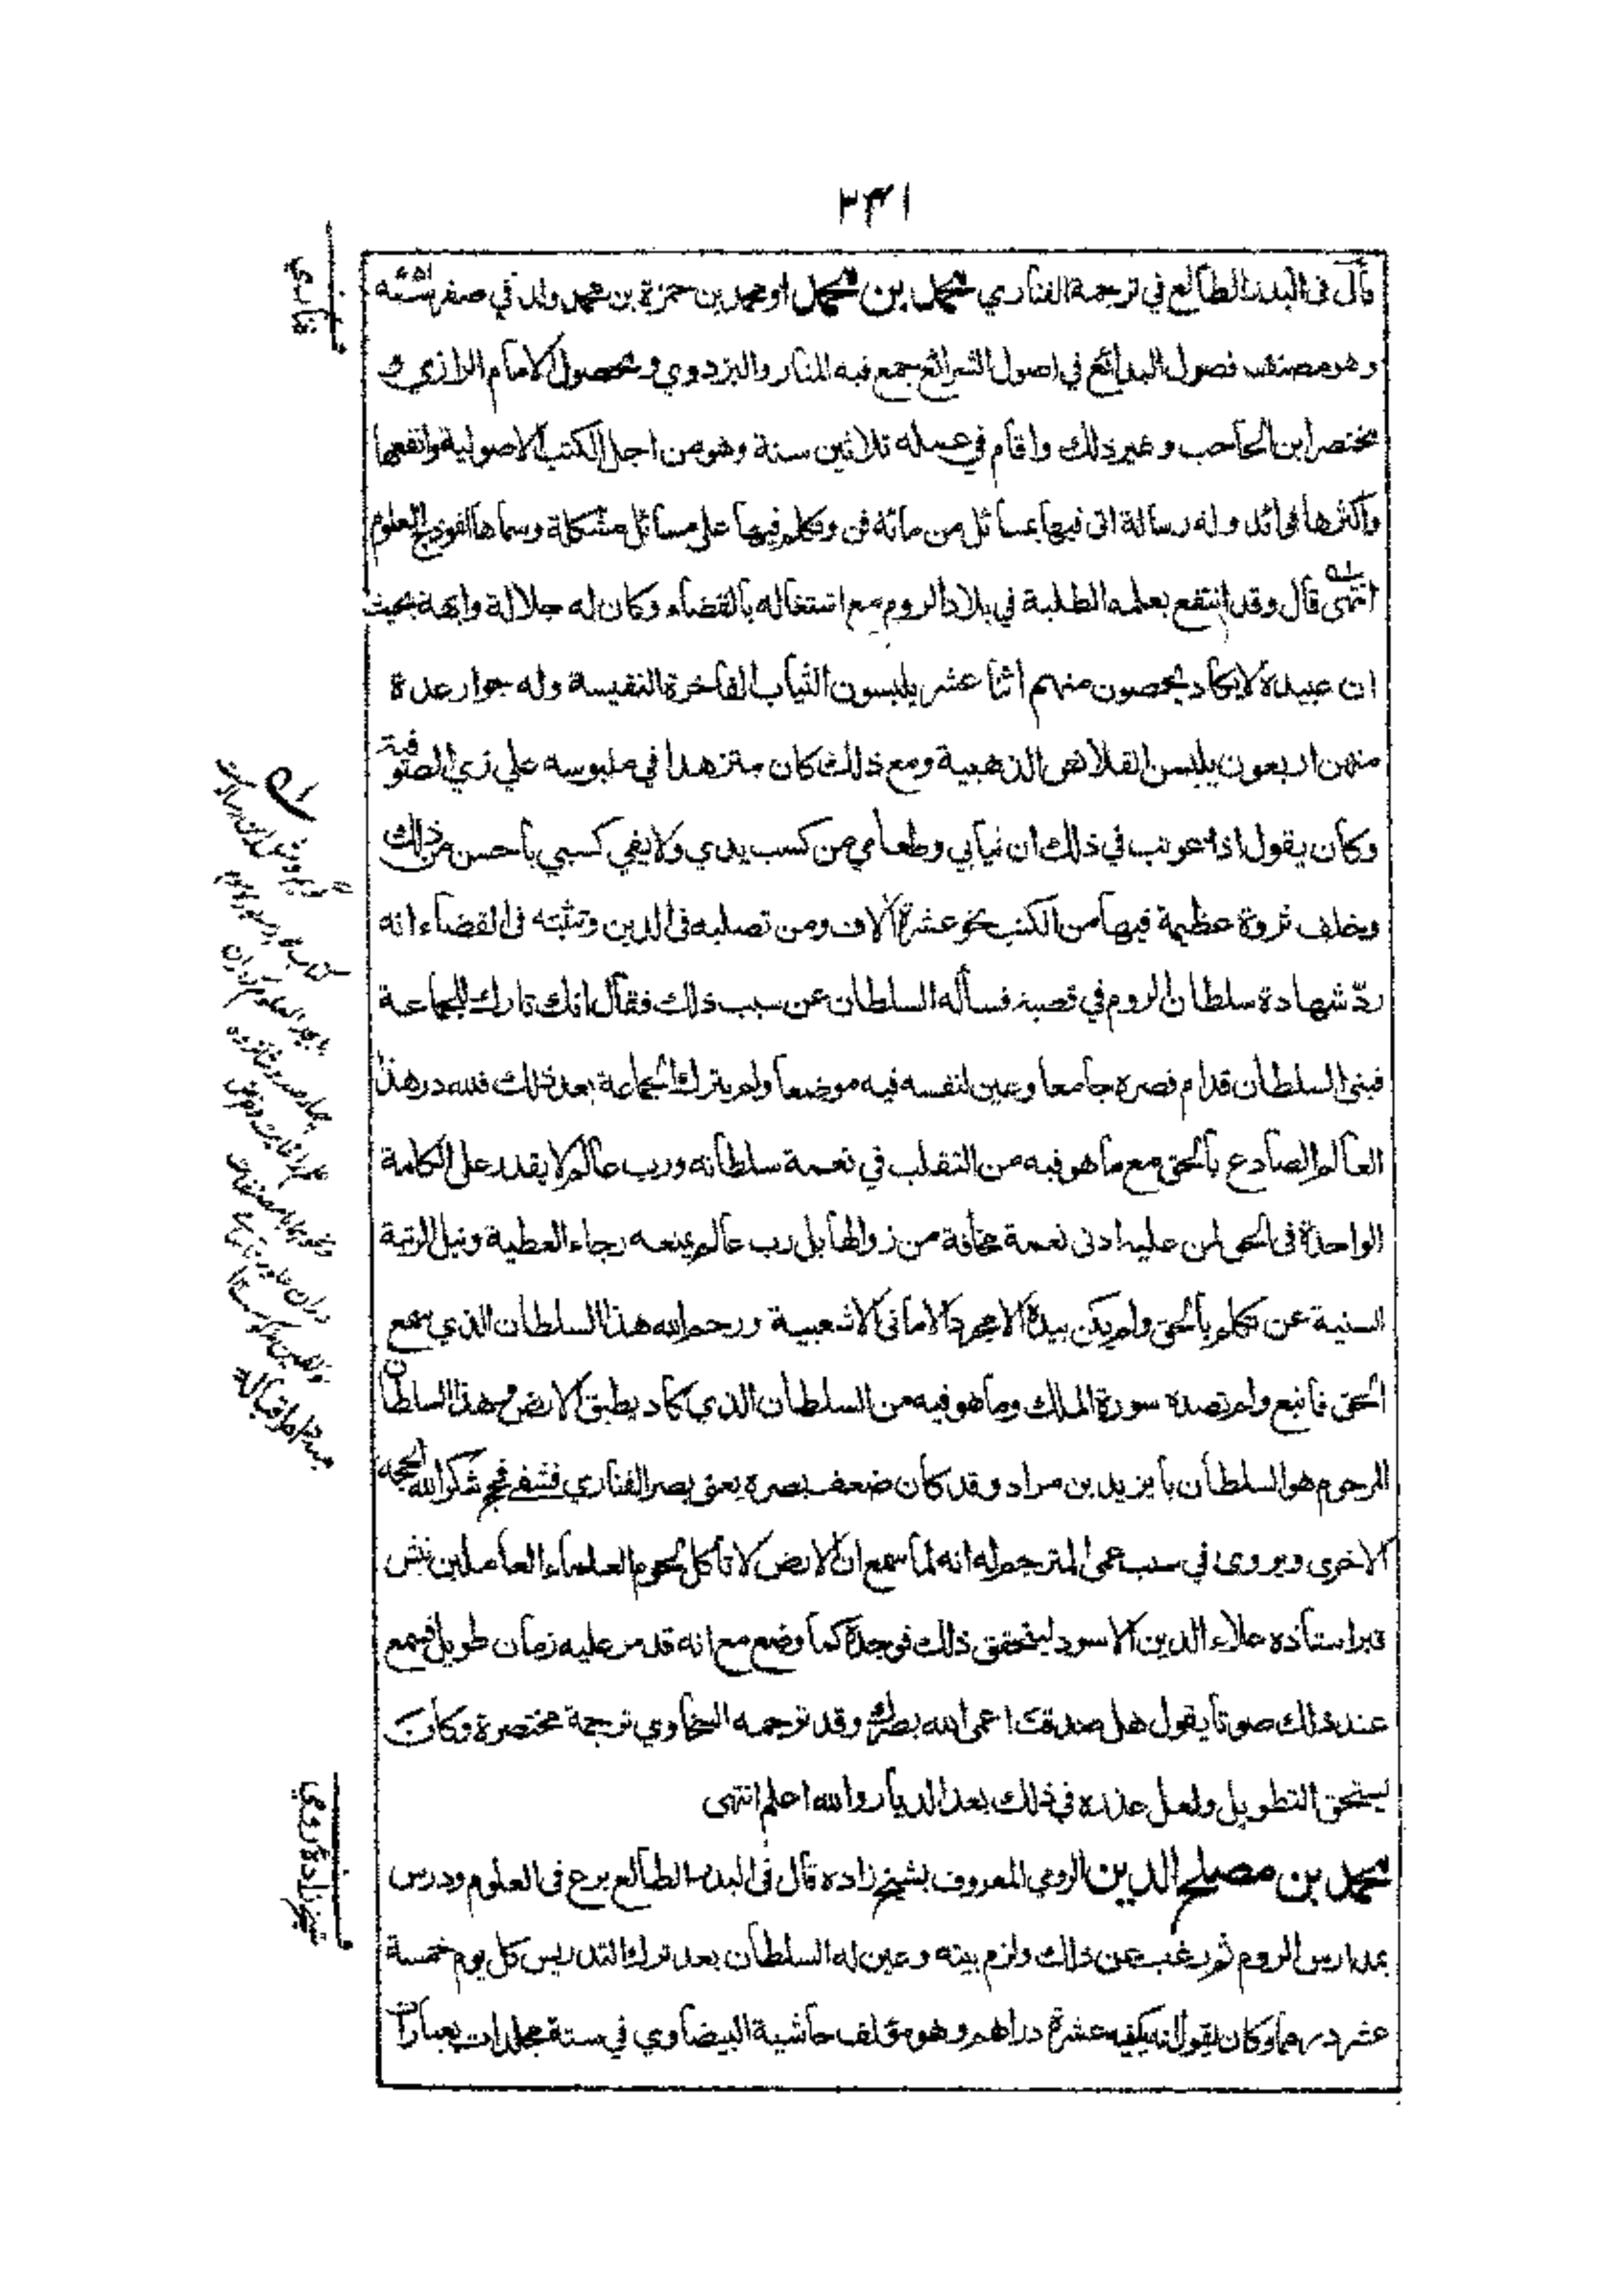 ٢٣١
قال فى البدر الطالع في ترجمة الفناري محمد بن محمد او محمد بن حمزة بن محمد ولد في صفر سنة
وهو مصنف فصول البدائع في اصول الشرائع جمع فيه المنار والبزدوي ومحصول الامام الرازي و
مختصر ابن الحاجب وغير ذلك واقام في عمله ثلاثين سنة وهو من اجل الكتب الاصولية وانفعها
واكثرها فوائد وله رسالة اتى فيها بمسائل من مائة فن وتكلم فيها على مسائل مشكلة وسماها انموذج العلوم
انتهى قال وقد انتفع بعلمه الطلبة في بلاد الروم مع اشتغاله بالقضاء وكان له جلالة وابهة بحيث
ان عبيده لا يكاد يحصون منهم اثنا عشر يلبسون الثياب الفاخرة النفيسة وله جوار عدة
منهن اربعون يلبسن القلانس الذهبية ومع ذلك كان متزهدا في ملبوسه علي زي الصوفية
وكان يقول اذا عوتب في ذلك ان ثيابي وطعامي من كسب يدي ولا يفي كسبي باحسن من ذلك
وخلف ثروة عظيمة فيها من الكتب نحو عشرة آلاف ومن تصلبه فى الدين وتثبته فى القضاء انه
ردّ شهادة سلطان الروم في قصية فسأله السلطان عن سبب ذلك فقال انك تارك للجماعة
فبنى السلطان قدام قصره جامعا وعين لنفسه فيه موضعا ولم يترك الجماعة بعد ذلك فلله در هذا
العالم الصادع بالحق مع ما هو فيه من التقلب في نعمة سلطانه ورب عالم لا يقدر على الكلمة
الواحدة فى الحق لمن عليه ادنى نعمة مخافة من زوالها بل رب عالم يمنعه رجاء العطية ونيل الرتبة
السنية عن تكلم بالحق ولم يكن بيده الا مجرد الامانى الاشعبية ورحم الله هذا السلطان الذي سمع
الحق فاتبع ولم تصده سورة الملك وما هو فيه من السلطان الذي كاد يطبق الارض وهذا السلطان
المرحوم هو السلطان بايزيد بن مراد وقد كان ضعف بصره يعنى بصر الفناري فشفي فحج شكرا لله الحجة
الاخرى ويروى في سبب عمى المترجم له انه لما سمع ان الارض لا تأكل لحوم العلماء العاملين نبش
قبر استاذه علاء الدين الاسود ليتحقق ذلك فوجده كما وضع مع انه قد مر عليه زمان طويل فسمع
عند ذلك صوتا يقول هل صدقت اعمى الله بصرك وقد ترجمه السخاوي ترجمة مختصرة وكان
يستحق التطويل ولعل عذره في ذلك بعد الديار والله اعلم انتهى
محمد بن مصلح الدين الرومي المعروف بشيخ زاده قال فى البدر الطالع برع فى العلوم ودرس
بمدارس الروم ثم رغب عن ذلك ولزم بيته وعين له السلطان بعد ترك التدريس كل يوم خمسة
عشر درهما وكان يقول انه يكفيه عشرة دراهم وهو مؤلف حاشية البيضاوي في ستة مجلدات بعبارات
فناري
شيخ زادة رومي